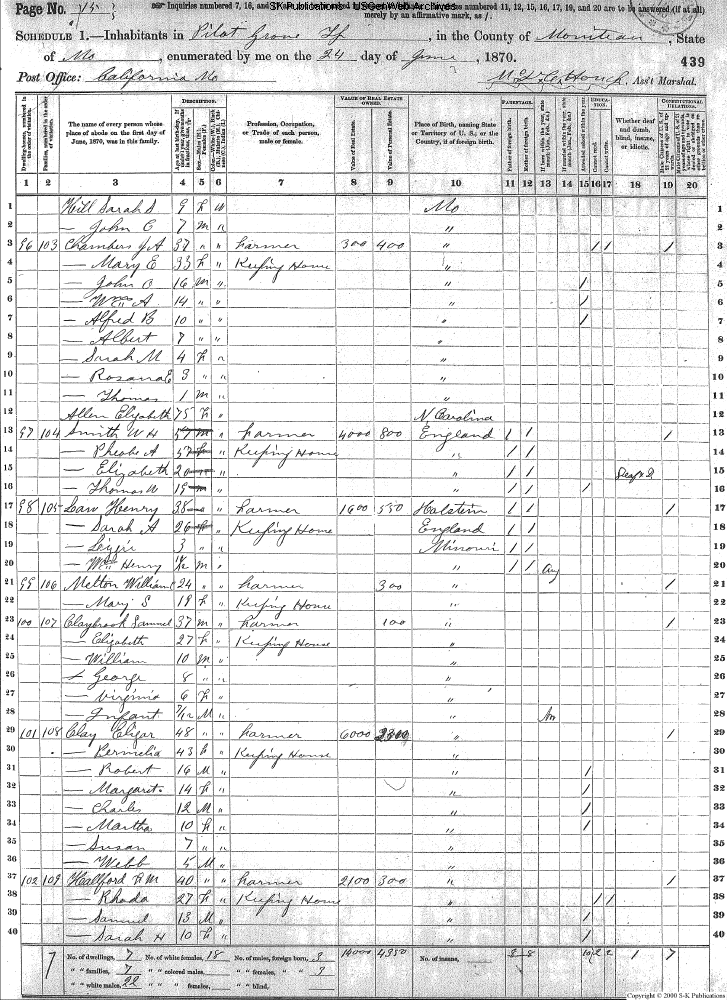 Page No. 
☞ Inquiries numbered 7, 16, and numbered 11, 12, 15, 16, 17, 19, and 20 are to be answered (if at all)
SK Publications USGenWeb Archives
merely by an affirmative mark, as /.
SCHEDULE 1.—Inhabitants in Pilot Grove Tp, in the County of Moniteau, State
of Mo, enumerated by me on the 24 day of June, 1870.
439
Post Office: California Mo
Ass't Marshal.
Dwelling-houses, numbered in the order of visitation.
Families, numbered in the order of visitation.
The name of every person whose place of abode on the first day of June, 1870, was in this family.
DESCRIPTION.
Profession, Occupation, or Trade of each person, male or female.
VALUE OF REAL ESTATE OWNED.
Value of Real Estate.
Value of Personal Estate.
Place of Birth, naming State or Territory of U. S.; or the Country, if of foreign birth.
PARENTAGE.
Father of foreign birth.
Mother of foreign birth.
EDUCATION.
Attended school within the year.
Cannot read.
Cannot write.
Whether deaf and dumb, blind, insane, or idiotic.
CONSTITUTIONAL RELATIONS.
1 2 3 4 5 6 7 8 9 10 11 12 13 14 15 16 17 18 19 20
1 Hill Sarah S 9 F W Mo 1
2 — John E 7 M " " 2
3 96 103 Chambers J A 37 " " Farmer 300 400 " / / / 3
4 — Mary E 33 F " Keeping House " 4
5 — John B 16 M " " / 5
6 — Wm A 14 " " " / 6
7 — Alfred B 10 " " " / 7
8 — Albert 7 " " " 8
9 — Sarah M 4 F " " 9
10 — Rosana E 3 " " " 10
11 — Thomas 1 M " " 11
12 Allen Elizabeth 75 F " N Carolina 12
13 97 104 Smith W H 57 M " Farmer 4000 800 England / / / 13
14 — Pheobe A 57 F " Keeping House " / / 14
15 — Elizabeth 20 " " / / Deaf & D 15
16 — Thomas W 19 M " " / / / 16
17 98 105 Law Henry 38 " Farmer 1600 550 Holstein / / / 17
18 — Sarah A 26 F " Keeping House England / / 18
19 — 3 " " Missouri / / 19
20 — Wm Henry M " " / / Aug 20
21 99 106 Melton William 24 " " Farmer 300 " / 21
22 — Mary S 19 F " Keeping House " 22
23 100 107 Claybrook Samuel 37 M " Farmer 100 " / 23
24 — Elizabeth 27 F " Keeping House " 24
25 — William 10 M " " 25
26 — George 8 " " " 26
27 — Virginia 6 F " " 27
28 — Infant 7/12 M " " 28
29 101 108 Clay 48 " " Farmer 6000 " / 29
30 — Permelia 43 F " Keeping House " 30
31 — Robert 16 M " " / 31
32 — Margaret 14 F " " / 32
33 — Charles 12 M " " / 33
34 — Martha 10 F " " / 34
35 — Susan 7 " " " 35
36 — Webb 5 M " " 36
37 102 109 Hallford R M 40 " " Farmer 2100 300 " / 37
38 — Rhoda 27 F " Keeping House " / / 38
39 — Samuel 13 M " " / 39
40 — Sarah H 10 F " " / 40
7 No. of dwellings, 7 No. of white females, 18 No. of males, foreign born, 3 14000 4350 No. of insane, 8 8 10 2 2 1 7
" " families, 7 " " colored males, " " females, " " 3
" " white males, 22 " " " females, " " blind,
Copyright © 2000 S-K Publications